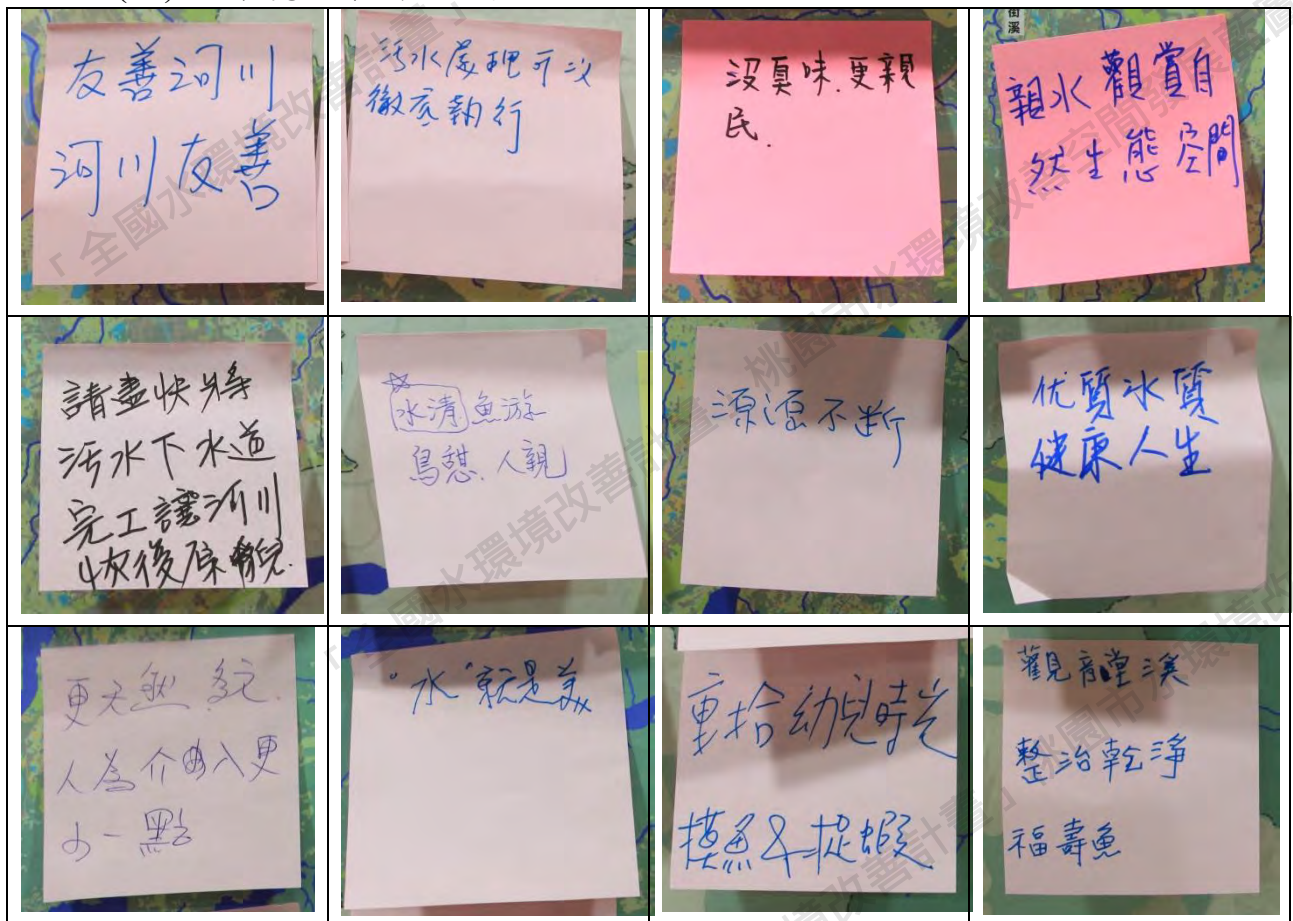 友善河川
河川友善
污水處理可以
徹底執行
沒臭味.更親
民.
街溪
親水觀賞自
然生態空間
請盡快將
污水下水道
完工讓河川
恢後原貌.
水清魚游
鳥憇.人親
源源不斷
优質水質
健康人生
更天然 多元.
人為介入更
少一點
"水"就是美
重拾幼兒時光
摸魚&捉蝦
觀音堂溪
整治乾淨
福壽魚
「全國水環境改善計畫」
桃園市水環境改善空間發展藍圖